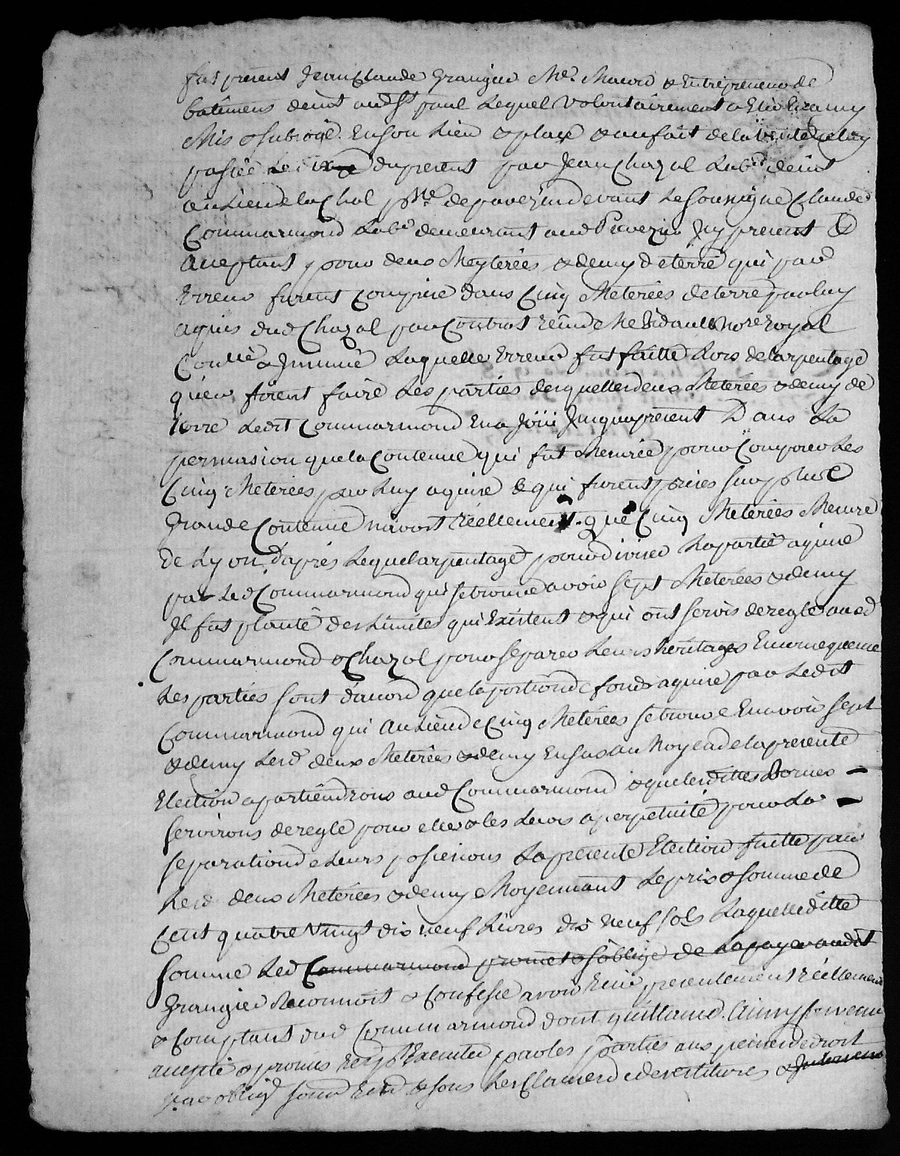 fut present Jean Claude Grangier Me. Macon & Entrepreneur de
batimens demt. au St paul Lequel volontairement a Elu Etamy
Mis & subrogé En son lieu & place & au fait de la vente a luy
passée Le du present par Jean Chazal Labr. demt
au lieu de la Chal psse. de paverin devant Le soussigné Claude
Commarmond Labr. demeurant aud Paverin Icy present &
aceptant pour deux Meyterées & demy de terre qui par
Erreur furent Compise dans Cinq Meterées de terre par luy
aquis dud Chazal par Contrat Reçu Me Bidault Nore Royal
laquelle Erreur fut faitte Lors de larpentage
quen firent faire Les parties desquelles deux Meterées & demy de
terre Ledit Commarmond En a Joüi Jusqua present Dans La
persuasion que la Contenue qui fut Mesurée pour Composer Les
Cinq Meterées par Luy aquise & qui furent prises sur plus
grande Contenue navoit Réellement que Cinq Meterées Mesure
de Lyon, daprés Lequel arpentage pour diviser La partie aquise
par Led Commarmond qui se trouve avoir sept Meterées & demy
Il fut planté des Limites qui Existent & qui ont servis de regle aud
Commarmond & Chazal pour separer Leurs héritages En consequence
Les parties sont d'acord que la portion de fonds aquise par Ledit
Commarmond qui Au Lieu de Cinq Meterées se trouve En avoir sept
& demy Lesd deux Meterées & demy En sus au Moyen de la presente
Election apartiendrons aud Commarmond & que lesdittes Bornes
servirons de regle pour elles & les Leurs a perpetuité pour La
separation de Leurs possessions La presente Election faitte pour
Lesd deux Meterées & demy Moyennant Le prix & somme de
Cent quatre vingt dix neuf Livres dix neuf sols Laquelle ditte
somme Led Commarmond promet & s'oblige de La payer audit
Grangier Reconnoit & Confesse avoir Reçu presentement Réellement
& Comptant dud Commarmond dont quittance. Ainsy Convenu
accepté & promis Executer par les parties aux peines de droit
par oblig & sous Les Clauses